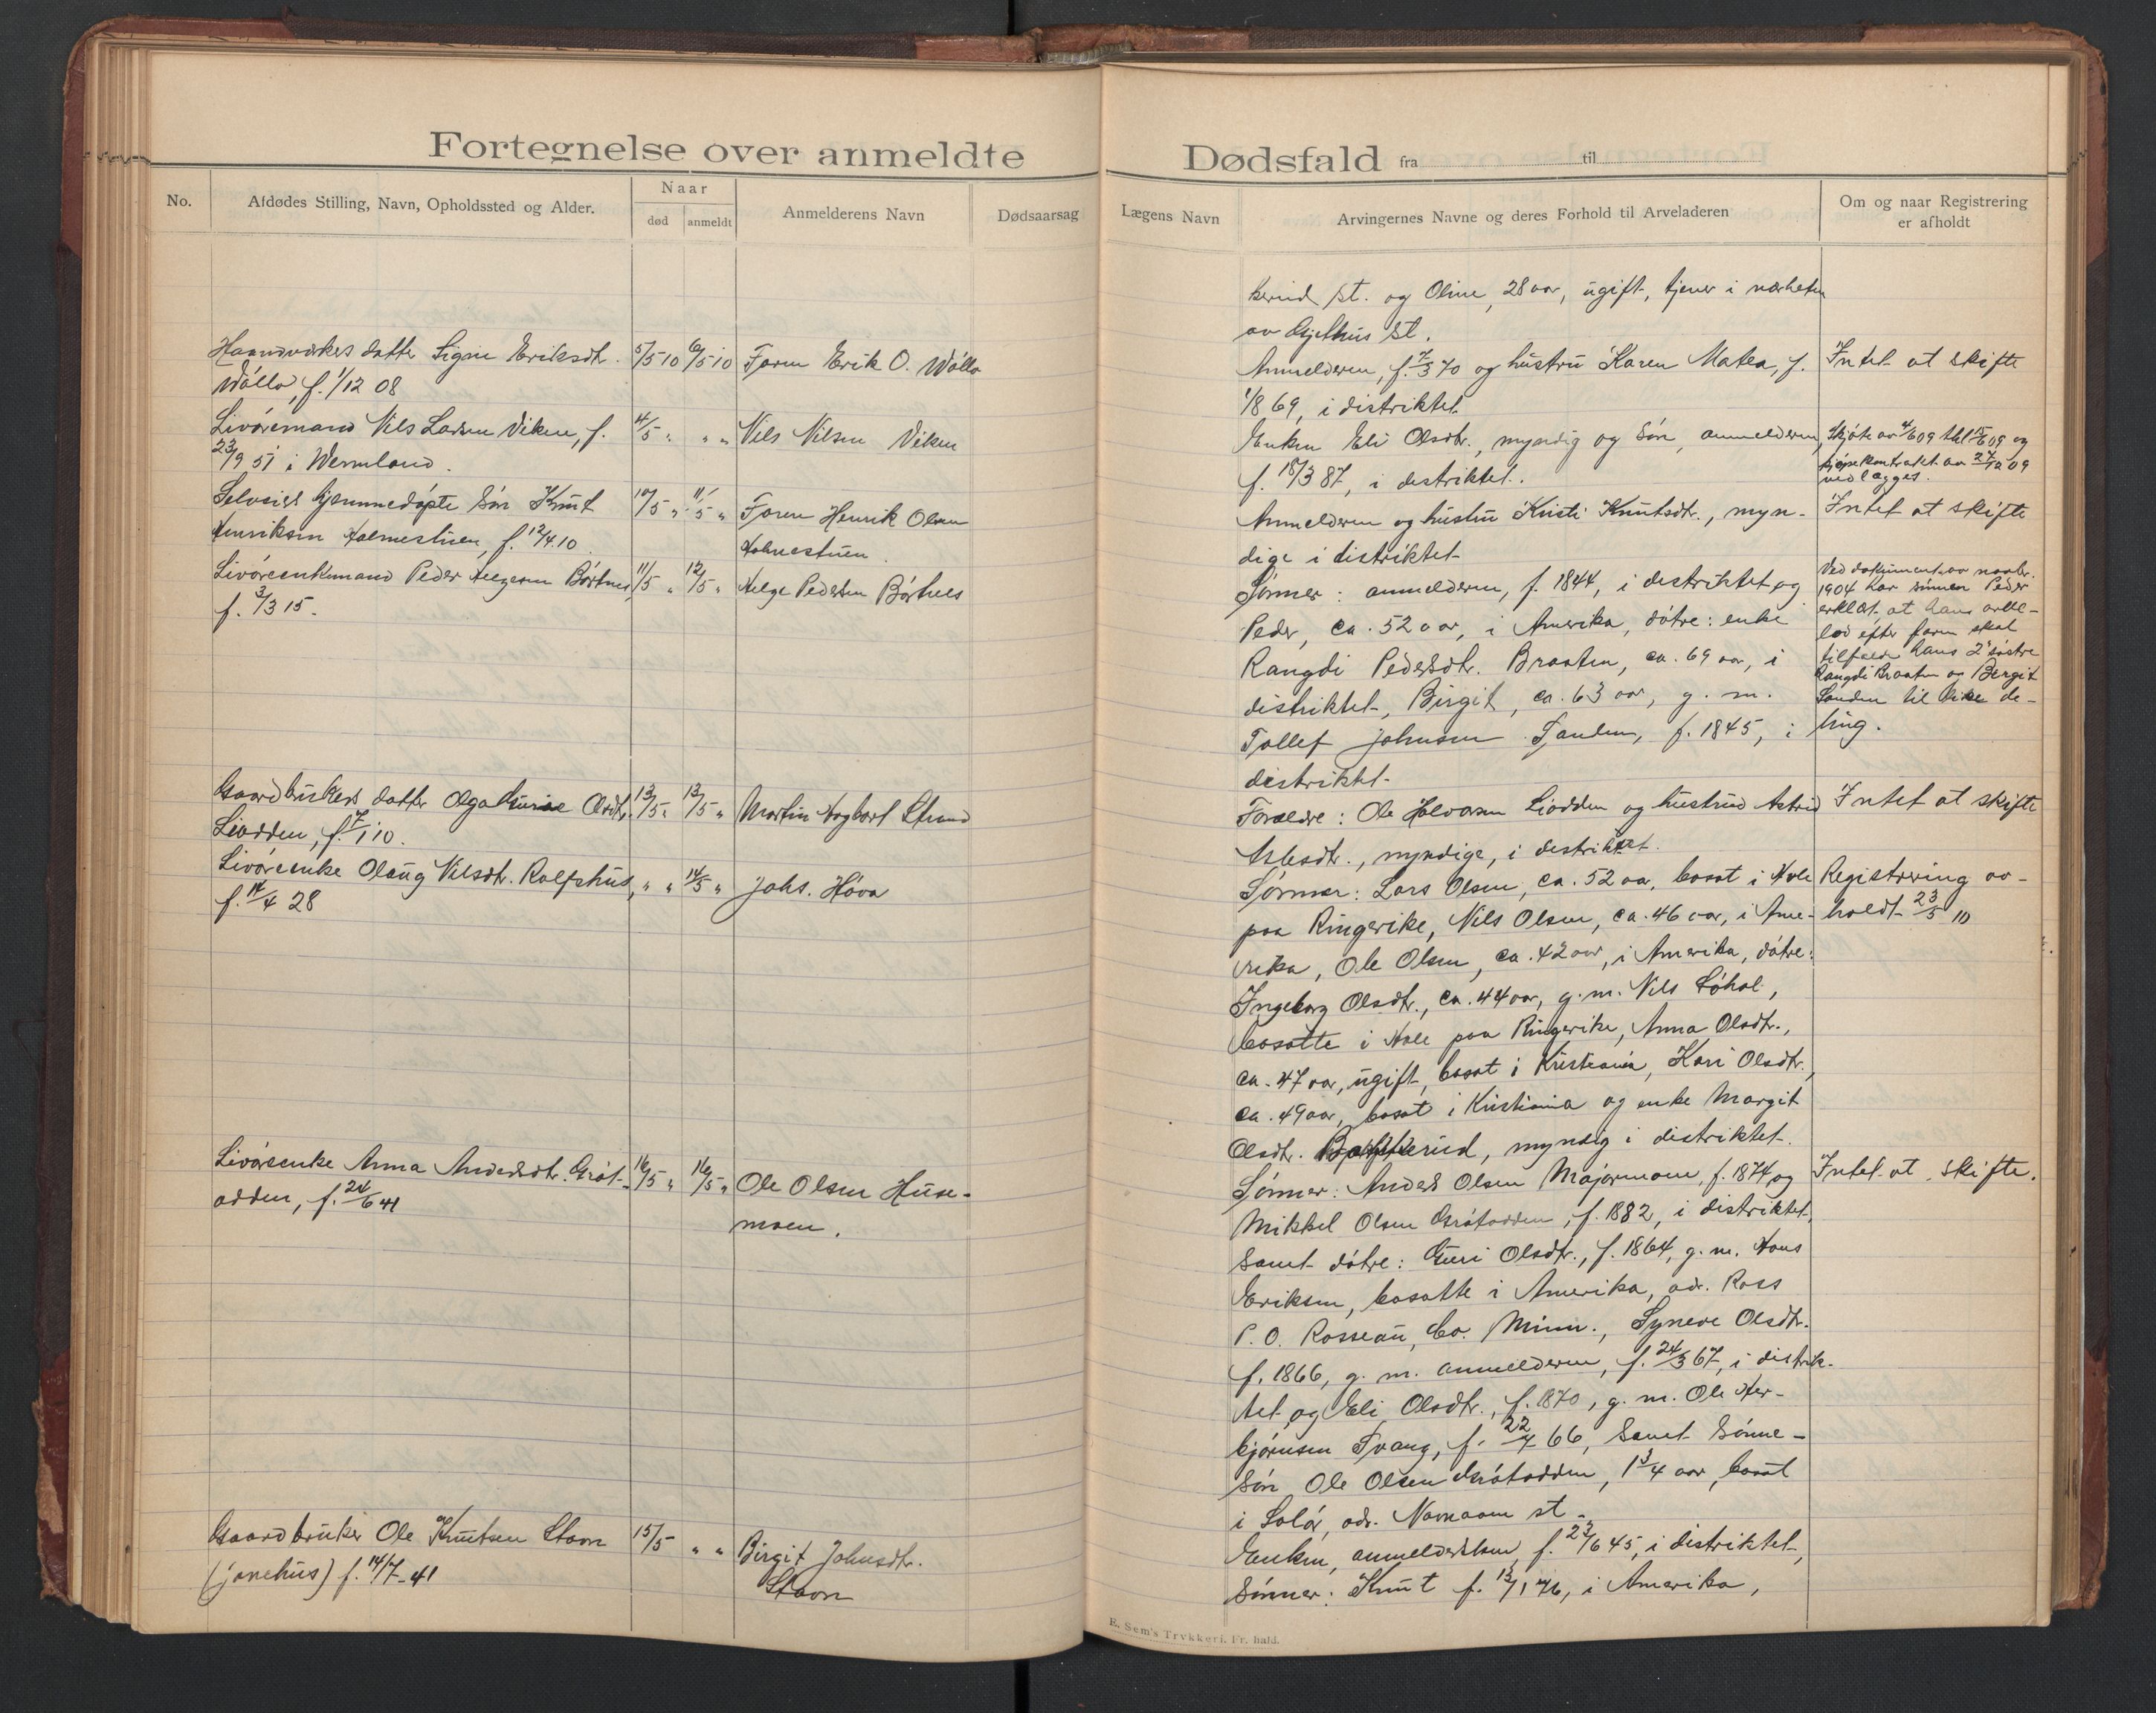 Fortegnelse over anmeldte
No.
Afdødes Stilling, Navn, Opholdssted og Alder.
Naar
død
anmeldt
Anmelderens Navn
Dødsaarsag
Haandverkers datter Signe Eriksdtr. 5/5 10 6/5 10 Faren Erik O. Wøllo
Wøllo, f. 1/12 08
Livøremand Nils Larsen Viken, f. 4/5 " " " Nils Nilsen Viken
23/9 51 i Wermland.
Selveiers hjemmedøpte søn Knut 10/5 " 11/5 " Faren Henrik Olsen
Henriksen Holmestuen, f. 12/4 10. Holmestuen
Livøresenkemand Peder Helgesen Børtnes, 11/5 " 12/5 " Helge Pedersen Børtnes
f. 3/3 15.
Gaardbrukers datter Olga Olsdtr. 13/5 " 13/5 " Martin Hagbart Strand
Liodden, f. 7/1 10.
Livørsenke Olaug Nilsdtr. Rolfshus, " " 14/5 " Johs. Høva
f. 14/4 28
Livørsenke Anna Andersdtr. Grøt- 16/5 " 16/5 " Ole Olsen Huse-
odden, f. 24/6 41 moen.
Gaardbruker Ole Knutsen Stavn 15/5 " " Birgit Johnsdtr.
(janehus) f. 14/7 41 Stavn
Dødsfald fra til
Lægens Navn
Arvingernes Navne og deres Forhold til Arveladeren
Om og naar Registrering
er afholdt
kerud st. og Oline, 28 aar, ugift, tjener i nærheten
av Gjethus st.
Anmelderen, f. 7/3 70 og hustru Karen Matea, f. Intet at skifte
1/8 69, i distriktet.
Enken Eli Olsdtr., myndig og søn, anmelderen, Skjøte av 4/6 09 thl 15/6 09 og
f. 18/3 87, i distriktet. kjøpekontrakt av 27/12 09
vedlægges.
Anmelderen og hustru Kristi Knutsdtr., myn- Intet at skifte
dige i distriktet
Sønner: anmelderen, f. 1844, i distriktet og
Peder, ca. 52 aar, i Amerika, døtre: enke
Rangdi Pedersdtr. Braaten, ca. 69 aar, i
distriktet, Birgit, ca. 63 aar, g. m.
Tollef Johnsen Sanden, f. 1845, i
distriktet.
Ved dokument av novbr.
1904 har sønnen Peder
erklært, at hans arve-
lod efter faren skal
tilfalde hans 2 søstre
Rangdi Braaten og Bergit
Sanden til like de-
ling.
Forældre: Ole Halvorsen Liodden og hustru Astrid Intet at skifte
Aslesdtr., myndige, i distriktet.
Sønner: Lars Olsen, ca. 52 aar, bosat i Hole Registrering av-
paa Ringerike, Nils Olsen, ca. 46 aar, i Ame- holdt 23/5 10
rika, Ole Olsen, ca. 42 aar, i Amerika, døtre:
Ingeborg Olsdtr., ca. 44 aar, g. m. Nils Løhol,
bosatte i Hole paa Ringerike, Anna Olsdtr.,
ca. 47 aar, ugift, bosat i Kristiania, Kari Olsdtr.,
ca. 49 aar, bosat i Kristiania og enke Margit
Olsdtr. myndig i distriktet.
Sønner: Anders Olsen Majormoen, f. 1874 og Intet at skifte.
Mikkel Olsen Grøtodden, f. 1882, i distriktet,
samt døtre: Guri Olsdtr., f. 1864, g. m. Hans
Eriksen, bosatte i Amerika, adr. Ross
P. O. Rosseau, Co. Minn., Syneve Olsdtr.
f. 1866, g. m. anmelderen, f. 24/3 67, i distrik-
tet og Eli Olsdtr., f. 1870, g. m. Ole Her-
bjørnsen Svang, f. 22/7 66, samt sønne-
søn Ole Olsen Grøtodden, 1 3/4 aar, bosat
i Solør, adr. Navnaaen st.
Enken, anmeldersken f. 23/6 45, i distriktet,
sønner: Knut f. 13/1 76, i Amerika,
E. Sem's Trykkeri, Fr. hald.